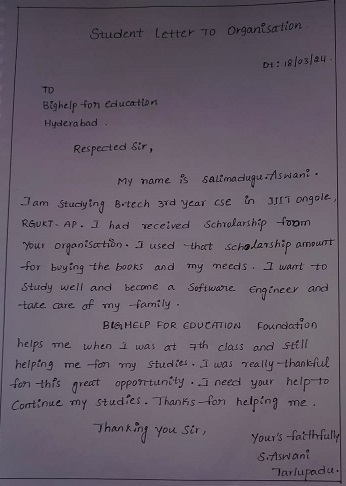 Student Letter To Organisation
Dt: 18/03/24.
TO
Bighelp for education
Hyderabad.
Respected Sir,
My name is Salimadugu.Aswani.
I am studying B.tech 3rd year CSE in IIIT ongole,
RGUKT-AP. I had received Schrolarship from
Your organisation. I used that scholarship amount
for buying the books and my needs. I want to
Study well and become a Software Engineer and
take care of my family.
BIGHELP FOR EDUCATION Foundation
helps me when I was at 7th class and still
helping me for my studies. I was really thankful
for this great opportunity. I need your help to
Continue my studies. Thanks for helping me.
Thanking you Sir,
Your's faithfully
S.Aswani
Tarlupadu.